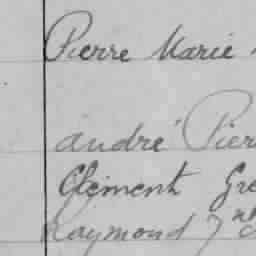 Pierre Marie
André Pier
Clément Gre
Raymond